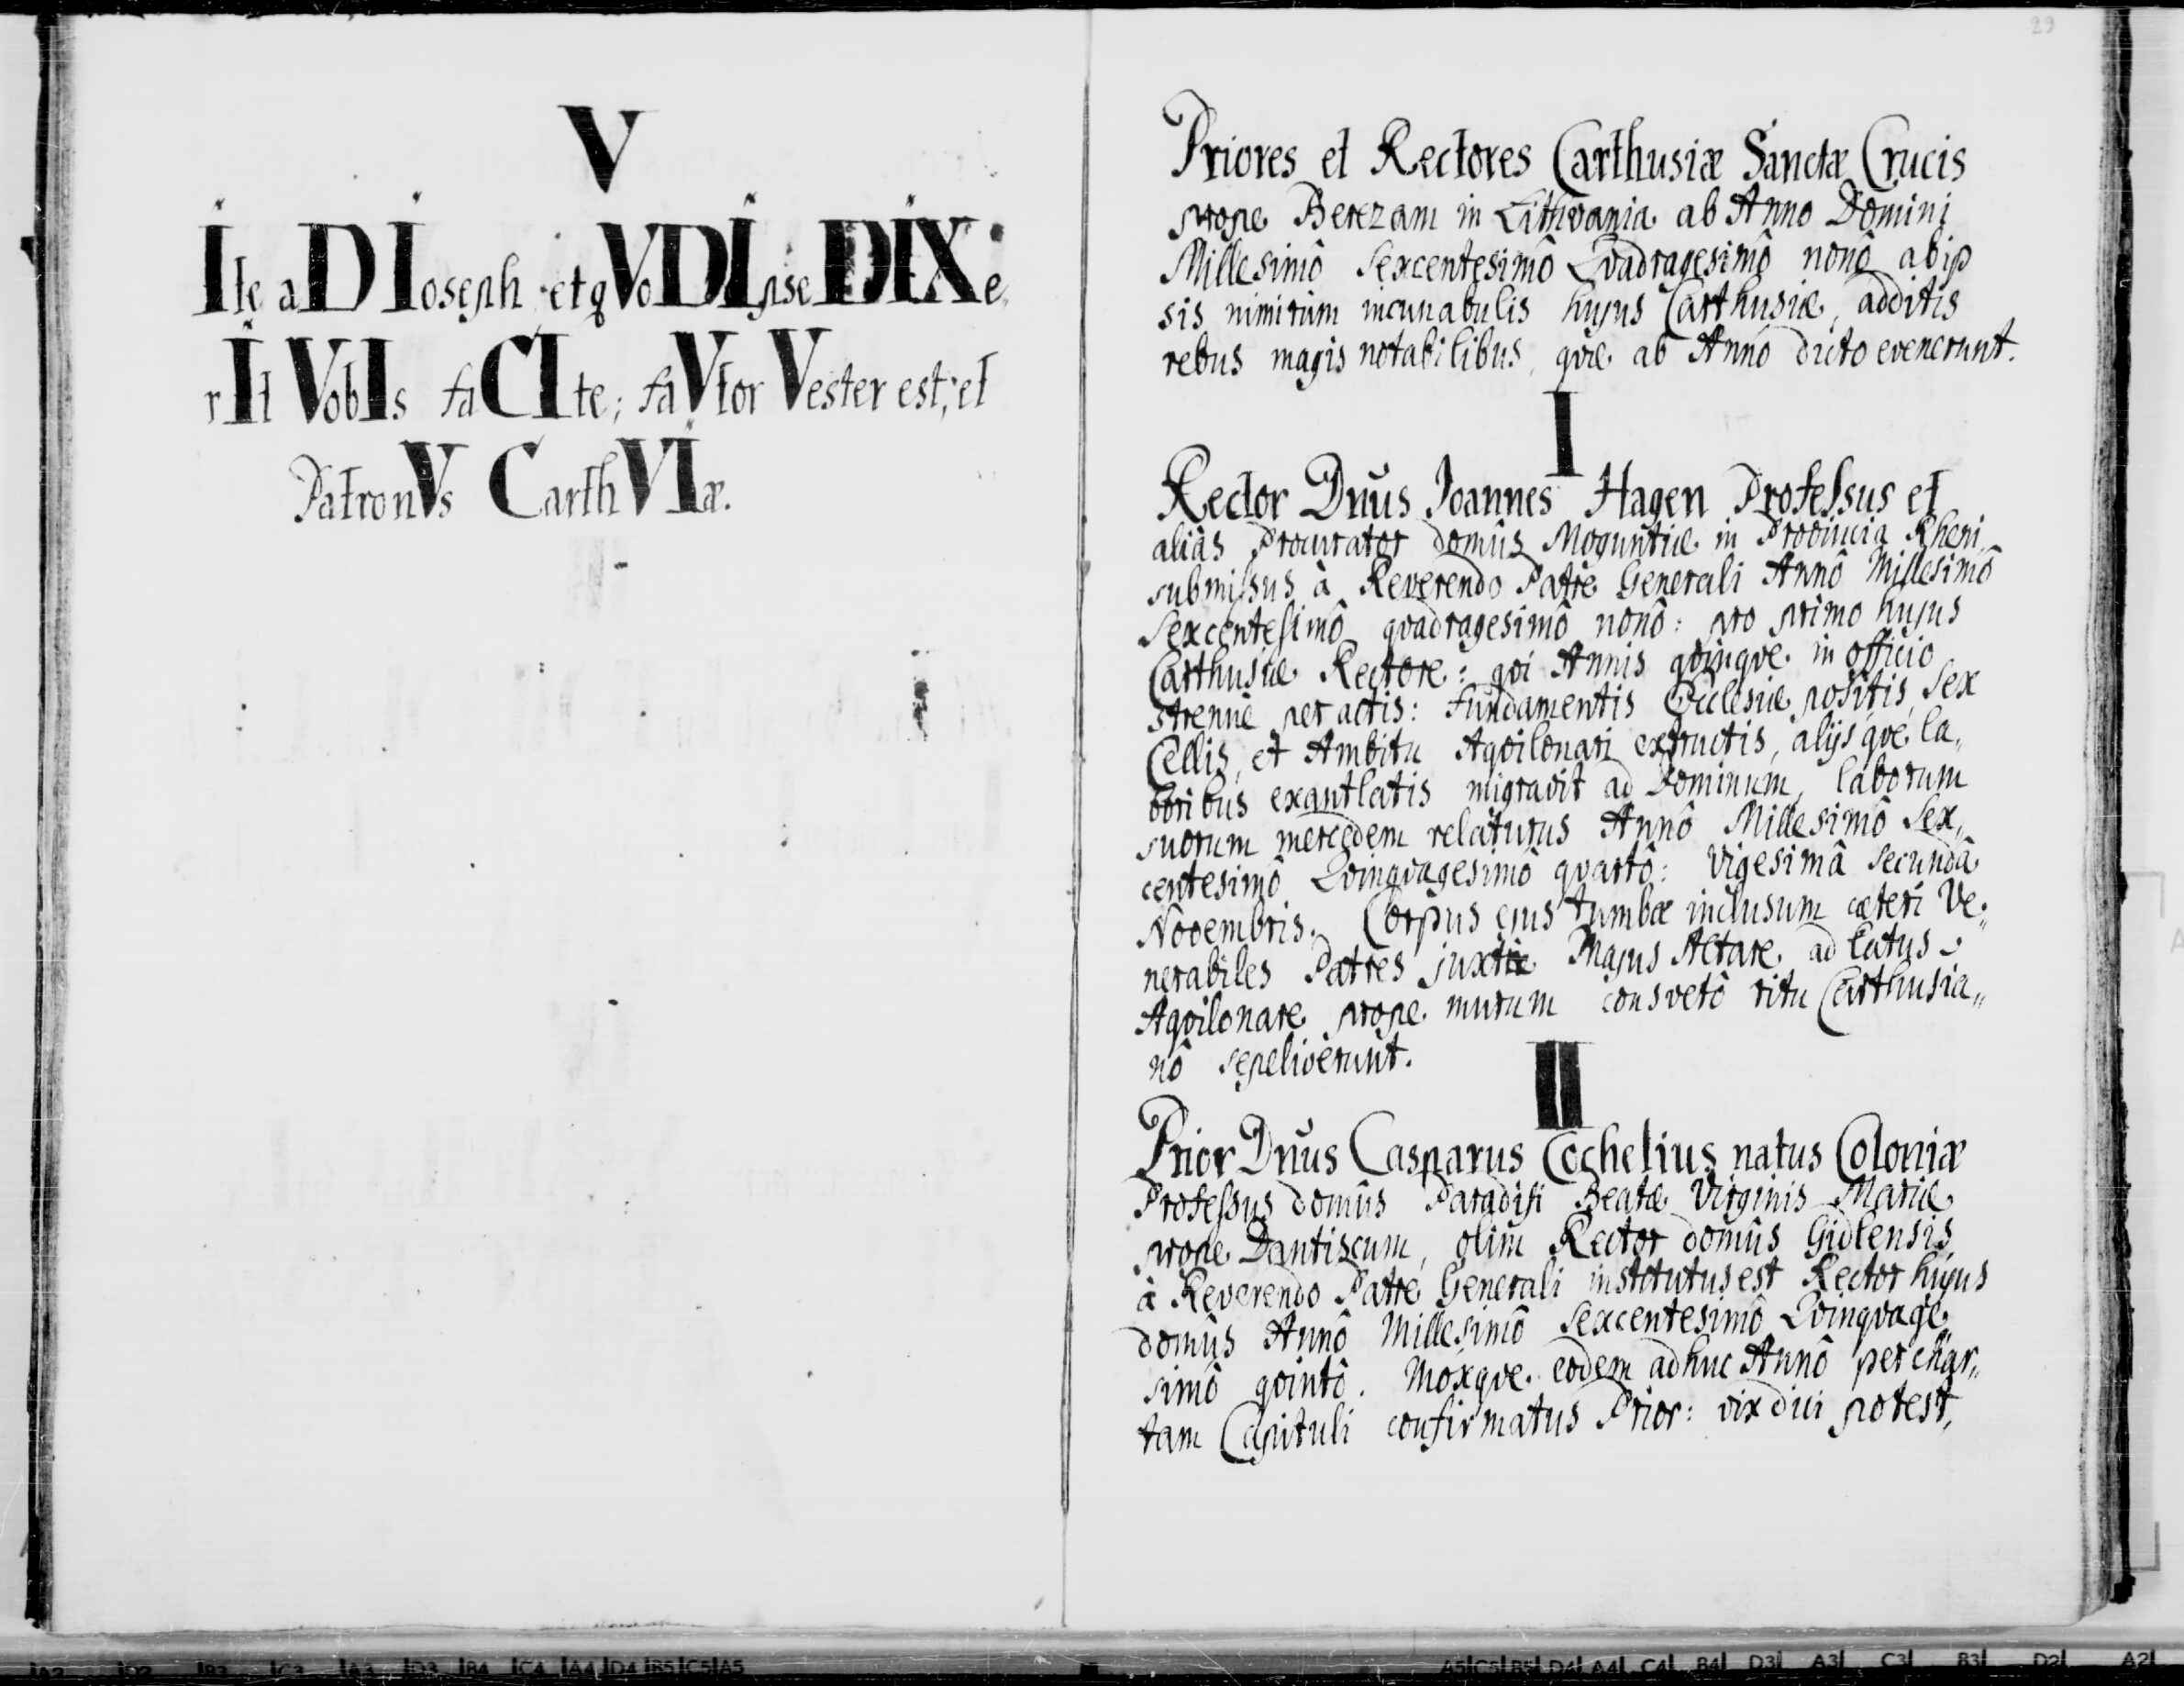 V
Ite aD Ioseph et qVoD Ipse DIXe
rIt VobIs faCIte; faVtor Vester est, et
PatronVs CarthVIæ.
29
Priores et Rectores Carthusiæ Sanctæ Crucis
prope Berezam in Lithvania ab Anno Domini
Millesimô Sexcentesimô Qvadragesimô nonô ab ip
sis nimirum incunabulis hujus Carthusiæ, additis
rebus magis notabilibus, qvæ ab Anno dicto evenerunt.
I
Rector Dnus Joannes Hagen Professus et
aliàs Procurator domûs Moguntiæ in Provincia Rheni
submissus à Reverendo Patre Generali Annô Millesimô
Sexcentesimô qvadragesimô nonô: pro primo hujus
Carthusiæ Rectore: qvi Annis qvinqve in officio
strenuè peractis: fundamentis Ecclesiæ positis, sex
Cellis, et Ambitu Aqvilonari extructis, alijsqve la„
boribus exantlatis migravit ad Dominum, laborum
suorum mercedem relaturus Annô Millesimô Sex„
centesimô Qvinqvagesimô qvartô: Vigesimâ Secundâ
Novembris. Corpus ejus tumbæ inclusum cæteri Ve„
nerabiles Patres juxta Majus Altare ad latus
Aqvilonare prope murum consvetô ritu Carthusia„
nô sepeliverunt.
II
Prior Dnus Casparus Cochelius natus Coloniæ
Professus domûs Paradisi Beatæ Virginis Mariæ
prope Dantiscum, olim Rector domûs Gidlensis
à Reverendo Patre Generali institutus est Rector hujus
domûs Annô Millesimô Sexcentesimô Qvinqvage„
simô qvintô. Moxqve eodem adhuc Annô per char„
tam Capituli confirmatus Prior: vix dici potest,
A2 D2 B3 C3 A3 D3 B4 C4 A4 D4 B5 C5 A5
A5 C5 B5 D4 A4 C4 B4 D3 A3 C3 B3 D2 A2